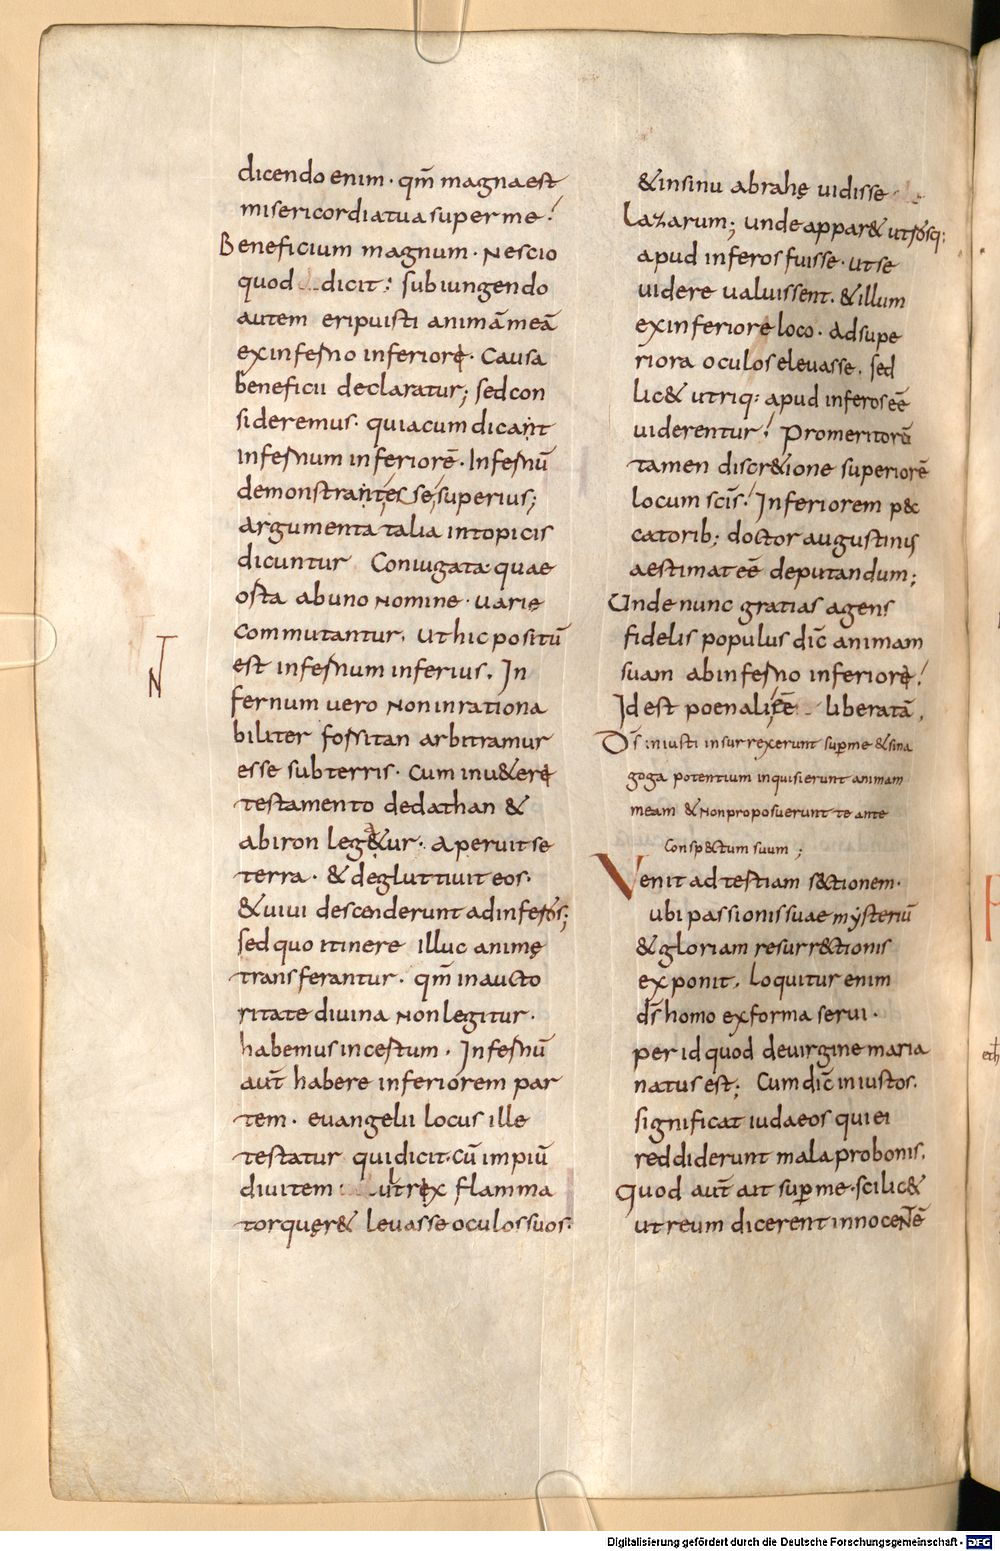 dicendo enim · qm̄ magna est
misericordia tua super me !
Beneficium magnum · Nescio
quod dicit ; subiungendo
autem eripuisti animā meā
ex inferno inferiore · Causa
beneficii declaratur ; sed con
sideremus · quia cum dicant
infernum inferiorē · Infernū
demonstrant esse superius ;
argumenta talia in topicis
dicuntur Coniugata · quae
osta ab uno Nomine · varie
commutantur . ut hic positū
est infernum inferius . In
fernum vero Non inrationa
biliter forsitan arbitramur
esse sub terris · cum in u&ere
testamento de dathan &
abiron leg&ur · aperuit se
terra · & degluttivit eos ·
& vivi descenderunt ad infer̄os ;
sed quo itinere illuc animę
transferantur · qm̄ in aucto
ritate divina Non legitur ·
habemus incertum · Infernū
aut̄ habere inferiorem par
tem · evangelii locus ille
testatur qui dicit · cū impiū
divitem ultrix flamma
torquer& levasse oculos suos ·
& in sinu abrahę vidisse
Lazarum ; unde appar& utrosq:
apud inferos fuisse · ut se
videre valuissent . & illum
ex inferiore loco · ad supe
riora oculos elevasse . sed
lic& utriq: apud inferos eē
viderentur ! Pro meritorū
tamen discr&ione superiorē
locum scīs ! Inferiorem pec
catorib; doctor augustinus
aestimat eē deputandum ;
Unde nunc gratias agens
fidelis populus dic̄ animam
suam ab inferno inferiore !
Id est poenali eē liberatā .
Ds̄ iniusti insurrexerunt sup me & sina
goga potentium inquisierunt animam
meam & Non proposuerunt te ante
Consp&ctum suum ;
Venit ad tertiam s&ctionem ·
ubi passionis suae mẏsteriū
& gloriam resurr&ctionis
exponit . Loquitur enim
ds̄ homo ex forma servi ·
per id quod de virgine maria
natus est ; Cum dic̄ iniustos .
significat iudaeos qui ei
reddiderunt mala pro bonis .
Quod aut̄ ait sup me · scilic&
ut reum dicerent innocentē
Digitalisierung gefördert durch die Deutsche Forschungsgemeinschaft - DFG